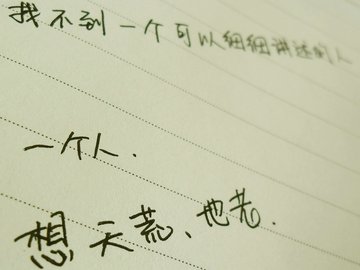 找不到一个可以细细讲述的人
一个人.
想,天荒、地老.